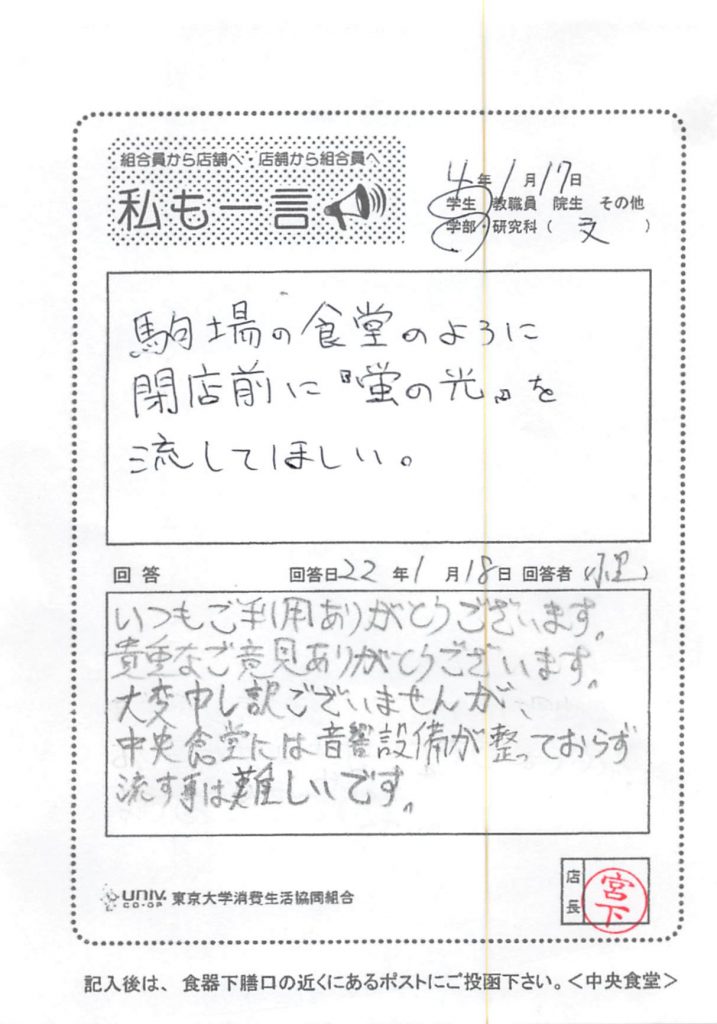 組合員から店舗へ・店舗から組合員へ
私も一言
4年1月17日
学生 教職員 院生 その他
学部・研究科（ 文 ）
駒場の食堂のように
閉店前に『蛍の光』を
流してほしい。
回答 回答日22年1月18日 回答者（小里）
いつもご利用ありがとうございます。
貴重なご意見ありがとうございます。
大変申し訳ございませんが、
中央食堂には音響設備が整っておらず
流す事は難しいです。
UNIV. CO-OP 東京大学消費生活協同組合
店長 宮下
記入後は、食器下膳口の近くにあるポストにご投函下さい。＜中央食堂＞